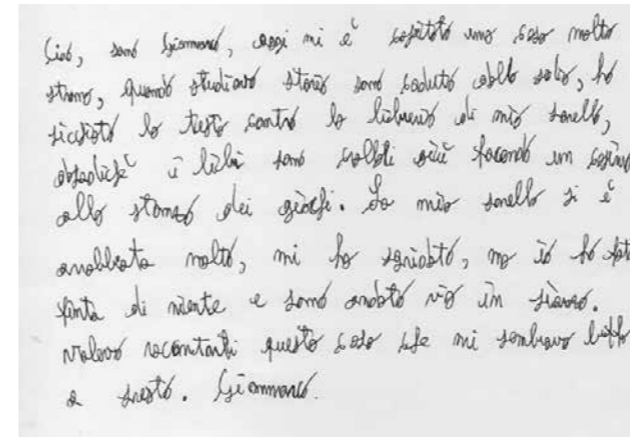 Ciao, sono Gianmarco, oggi mi è capitata una cosa molto
strana, quando studiavo storia sono caduto dalla sedia, ho
picchiato la testa contro la libreria di mia sorella,
dopodiché i libri sono crollati giù facendo un casino
alla stanza dei giochi. La mia sorella si è
arrabbiata molto, mi ha sgridato, ma io ho fatto
finta di niente e sono andato via in
Volevo raccontarti questa cosa che mi sembrava buffa
a presto. Gianmarco.